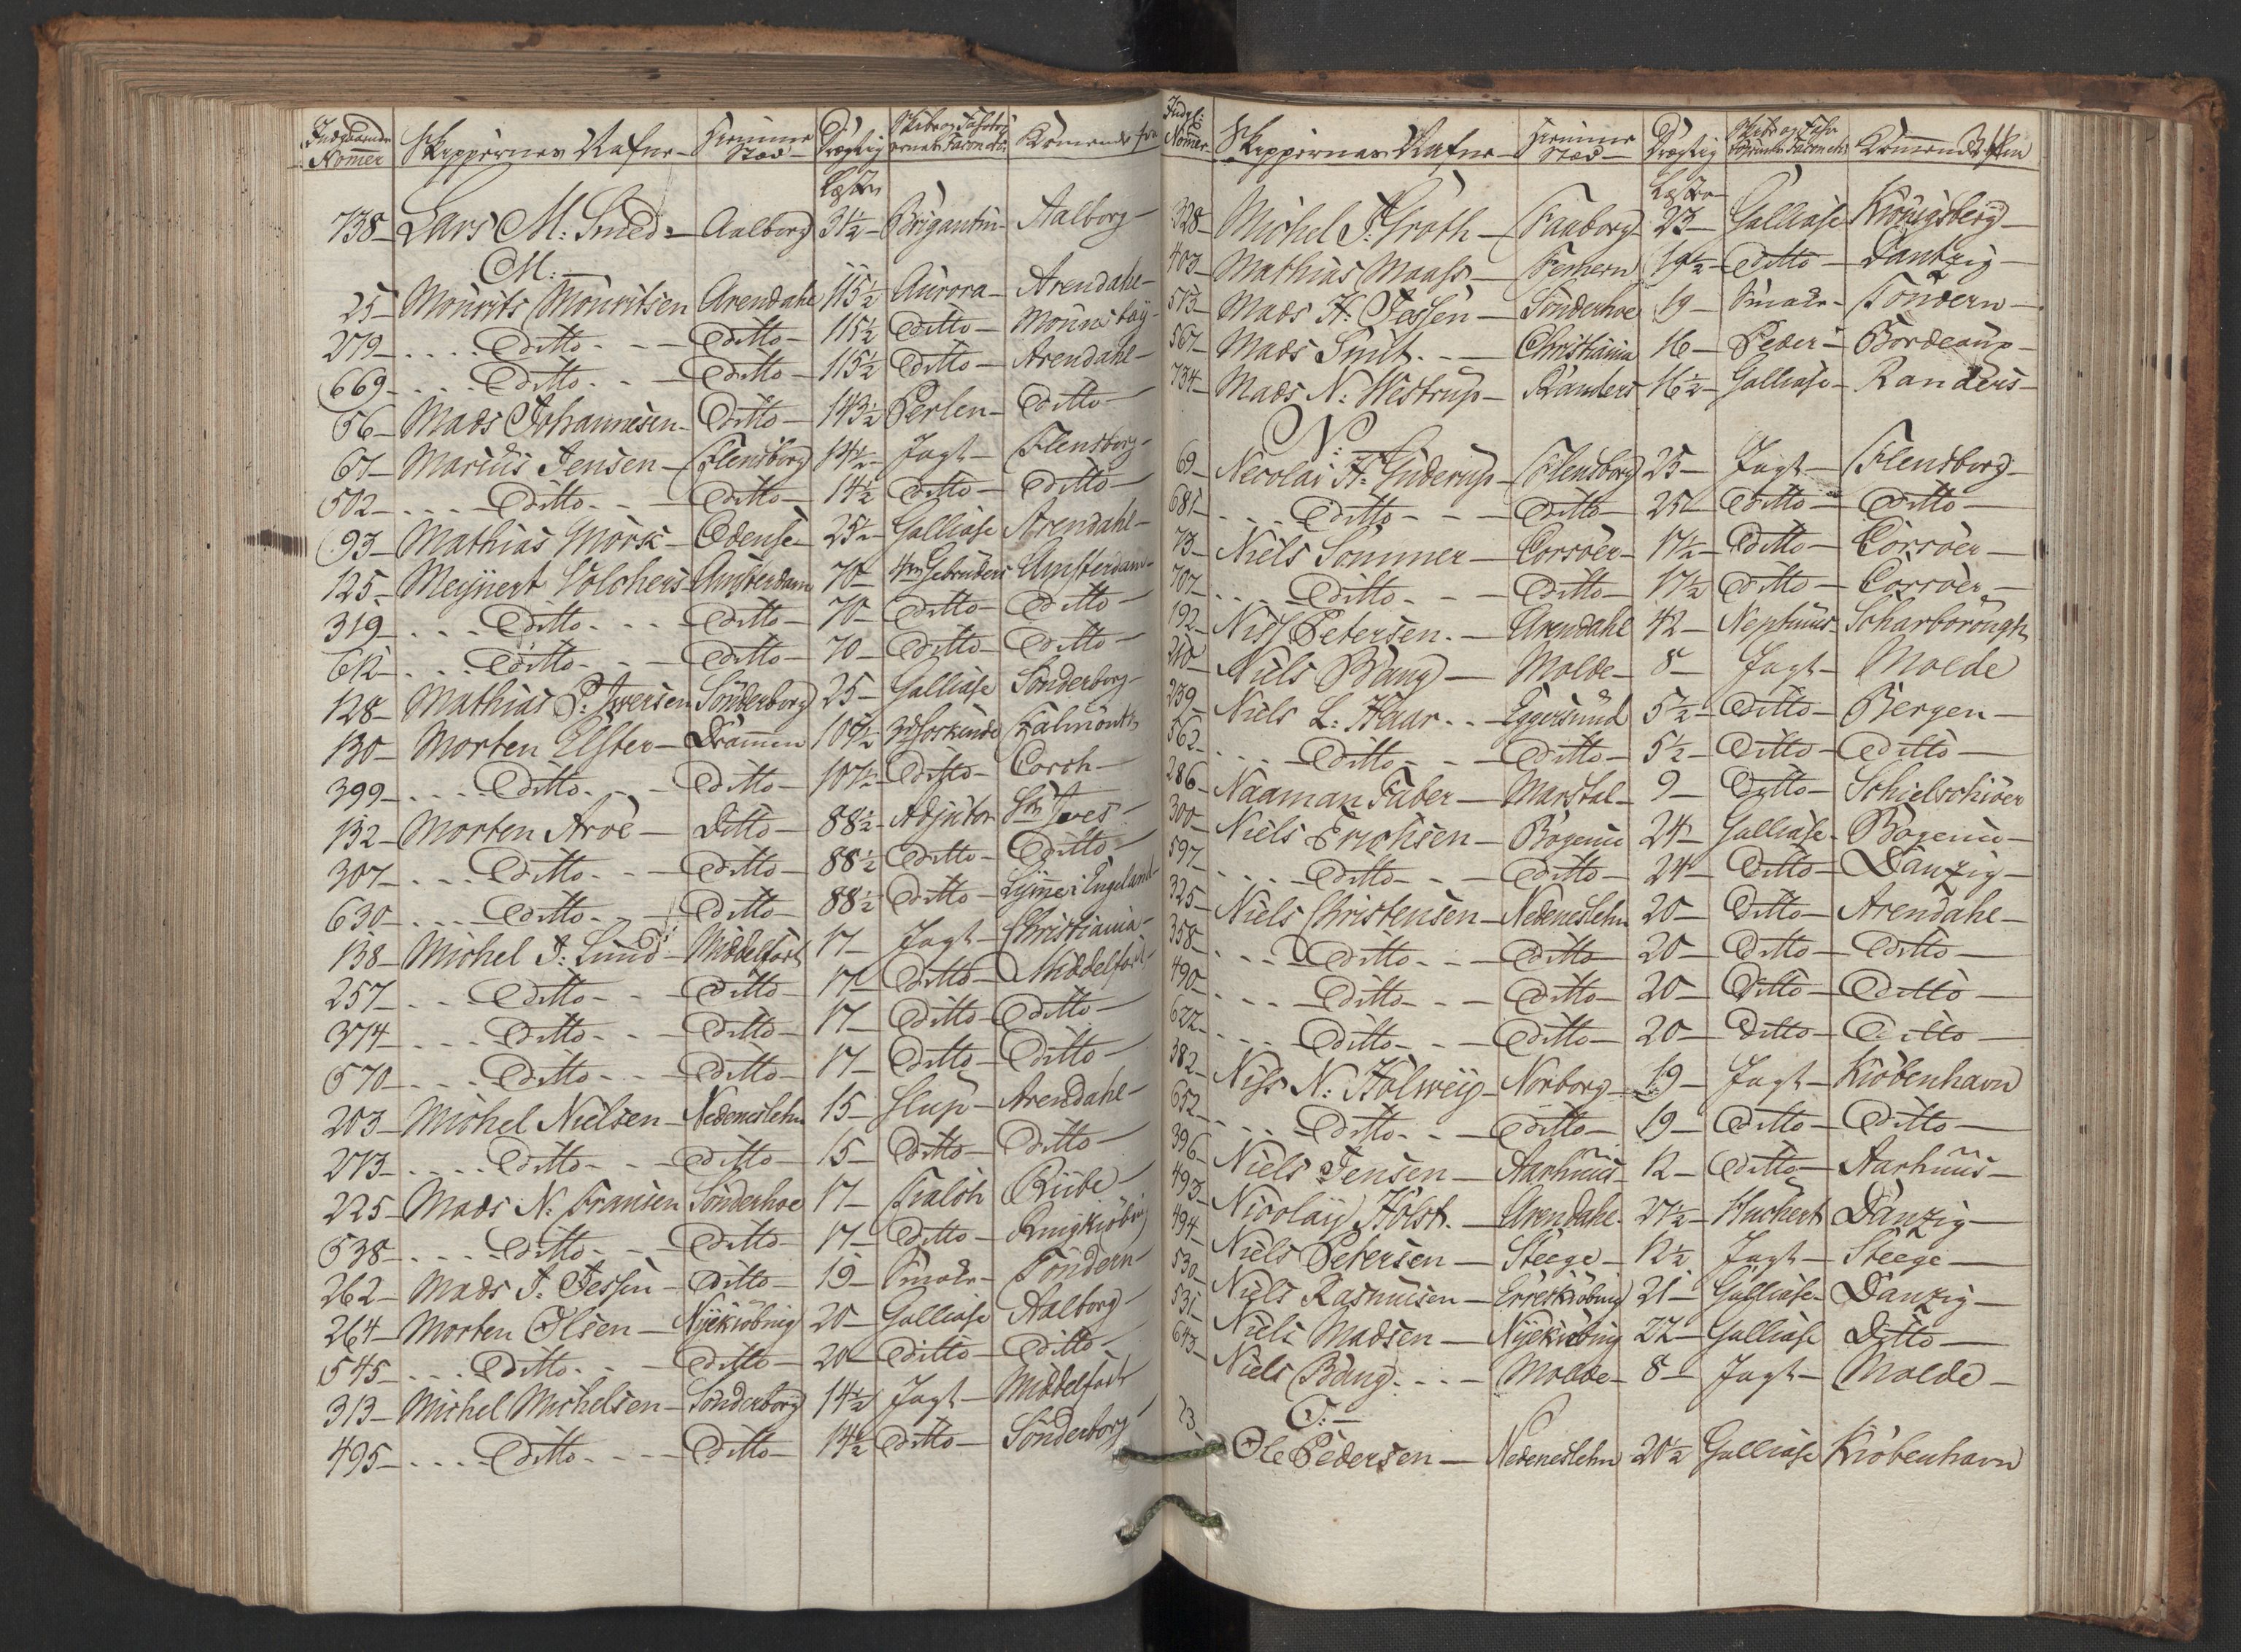 Indgaaende Nomer Skippernes Nafne Hiemme Stæd Drægtig Kommende fra
Læster
738 Lars M. Smed Aalborg 31½ Brigantin Aalborg
M:
25 Mourits Mouritsen Arendahl 115½ Aurora Arendahl
279 Ditto Ditto 115½ Ditto
669 Ditto Ditto 115½ Ditto Arendahl
56 Mads Johannesen Ditto 143½ Perlen Ditto
67 Marcus Jensen Flensborg 14½ Jagt Flensborg
502 Ditto Ditto 14½ Ditto Ditto
93 Mathias Mörk Odense 25½ Galliase Arendahl
125 Meijnert Volchers Amsterdam 70 Gebrüders Amsterdam
319 Ditto Ditto 70 Ditto Ditto
612 Ditto Ditto 70 Ditto Ditto
128 Mathias P. Iversen Sönderborg 25 Galliase Sönderborg
130 Morten Elster Drammen 107½ Falmouth
399 Ditto Ditto 107½ Ditto Corck
132 Morten Aroe Ditto 88½ Adjutor St Ives
307 Ditto Ditto 88½ Ditto Ditto
630 Ditto Ditto 88½ Ditto Lynne i Engeland
138 Michel J: Lund Middelfart 17 Jagt Christiania
257 Ditto Ditto 17 Ditto Middelfart
374 Ditto Ditto 17 Ditto Ditto
570 Ditto Ditto 17 Ditto Ditto
203 Michel Nielsen Nedeneslehn 15 Slup Arendahl
273 Ditto Ditto 15 Ditto Ditto
225 Mads N. Fransen Sönderhoe 17 Riibe
538 Ditto Ditto 17 Ditto Ringkiöbing
262 Mads J. Jessen Ditto 19 Smak Töndern
264 Morten Olsen Nijekiöbing 20 Galliase Aalborg
545 Ditto Ditto 20 Ditto Ditto
313 Michel Michelsen Sönderborg 14½ Jagt Middelfart
495 Ditto Ditto 14½ Ditto Sönderborg
Indg: Nomer Skippernes Nafne Hiemme Stæd Drægtig Kommende fra
Læster
328 Michel J. Groth Faaborg 23 Galliase Königsberg
403 Mathias Maass Femern 19½ Ditto Dantzig
513 Mads H. Jessen Sönderhoe 19 Smak Töndern
567 Mads Smit Christiania 16 Peder Bordeaux
734 Mads N. Westrup Randers 16½ Galliase Randers
N:
69 Necolai H. Guderup Flensborg 25 Jagt Flensborg
681 Ditto Ditto 25 Ditto Ditto
73 Niels Sommer Corsöer 17½ Ditto Corsöer
707 Ditto Ditto 17½ Ditto Corsöer
192 Niss Petersen Arendahl 42 Neptunus Scharborough
210 Niels Bang Molde 8 Jagt Molde
239 Niels L. Haar Eggersund 5½ Ditto Bergen
562 Ditto Ditto 5½ Ditto Ditto
286 Naaman Faber Marstal 9 Ditto Schielschiöer
300 Niels Erichsen Bogense 24 Galliase Bogense
597 Ditto Ditto 24 Ditto Danzig
325 Niels Christensen Nedeneslehn 20 Ditto Arendahl
358 Ditto Ditto 20 Ditto Ditto
490 Ditto Ditto 20 Ditto Ditto
622 Ditto Ditto 20 Ditto Ditto
382 Niss N. Holweig Norborg 19 Jagt Kiöbenhavn
652 Ditto Ditto 19 Ditto Ditto
396 Niels Jensen Aarhuus 12 Ditto Aarhuus
493 Nicolaij Holst Arendahl 27½ Huckert Danzig
494 Niels Petersen Steege 12½ Jagt Steege
530 Niels Rasmusen Erreskiöbing 21 Galliase Danzig
531 Niels Madsen Nijekiöbing 22 Galliase Ditto
643 Niels Bang Molde 8 Jagt Molde
O:
23 Ole Pedersen Nedeneslehn 20½ Galliase Kiöbenhavn